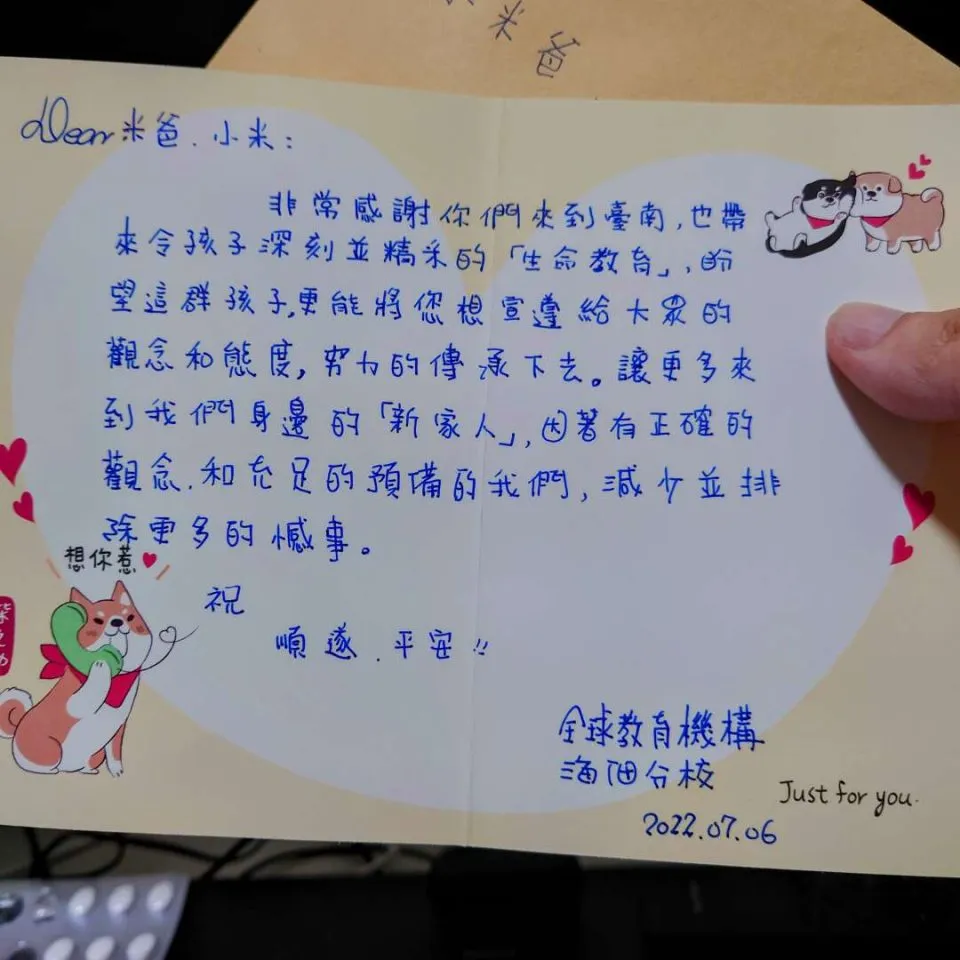 米爸
Dear 米爸、小米：
非常感謝你們來到臺南，也帶
來令孩子深刻並精采的「生命教育」，盼
望這群孩子，更能將您想宣導給大眾的
觀念和態度，努力的傳承下去。讓更多來
到我們身邊的「新家人」，因著有正確的
觀念、和充足的預備的我們，減少並排
除更多的憾事。
想你惹
祝
順遂、平安!!
全球教育機構
海佃分校
2022.07.06
Just for you.